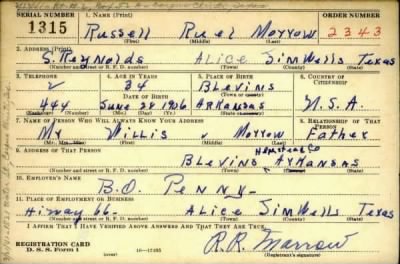 SERIAL NUMBER 1. NAME (Print) ORDER NUMBER
1315 Russell Ruel Morrow 2343
(First) (Middle) (Last)
2. ADDRESS (Print)
S. Reynolds Alice Jim Wells Texas
(Number and street or R. F. D. number) (Town) (County) (State)
3. TELEPHONE 4. AGE IN YEARS 5. PLACE OF BIRTH 6. COUNTRY OF CITIZENSHIP
34 Blevins
DATE OF BIRTH (Town)
444 June 28 1906 Arkansas U.S.A.
(Exchange) (Number) (Mo.) (Day) (Yr.) (State or country)
7. NAME OF PERSON WHO WILL ALWAYS KNOW YOUR ADDRESS 8. RELATIONSHIP OF THAT PERSON
Mr Willis v Morrow Father
(Mr., Mrs., Miss) (First) (Middle) (Last)
9. ADDRESS OF THAT PERSON
Hempstead Co
Blevins Arkansas
(Number and street or R. F. D. number) (Town) (County) (State)
10. EMPLOYER'S NAME
B.O. Penny
11. PLACE OF EMPLOYMENT OR BUSINESS
Hiway 66 Alice Jim Wells Texas
(Number and street or R. F. D. number) (Town) (County) (State)
I AFFIRM THAT I HAVE VERIFIED ABOVE ANSWERS AND THAT THEY ARE TRUE.
REGISTRATION CARD
D. S. S. Form 1 16—17105 R.R. Morrow
(over) (Registrant's signature)